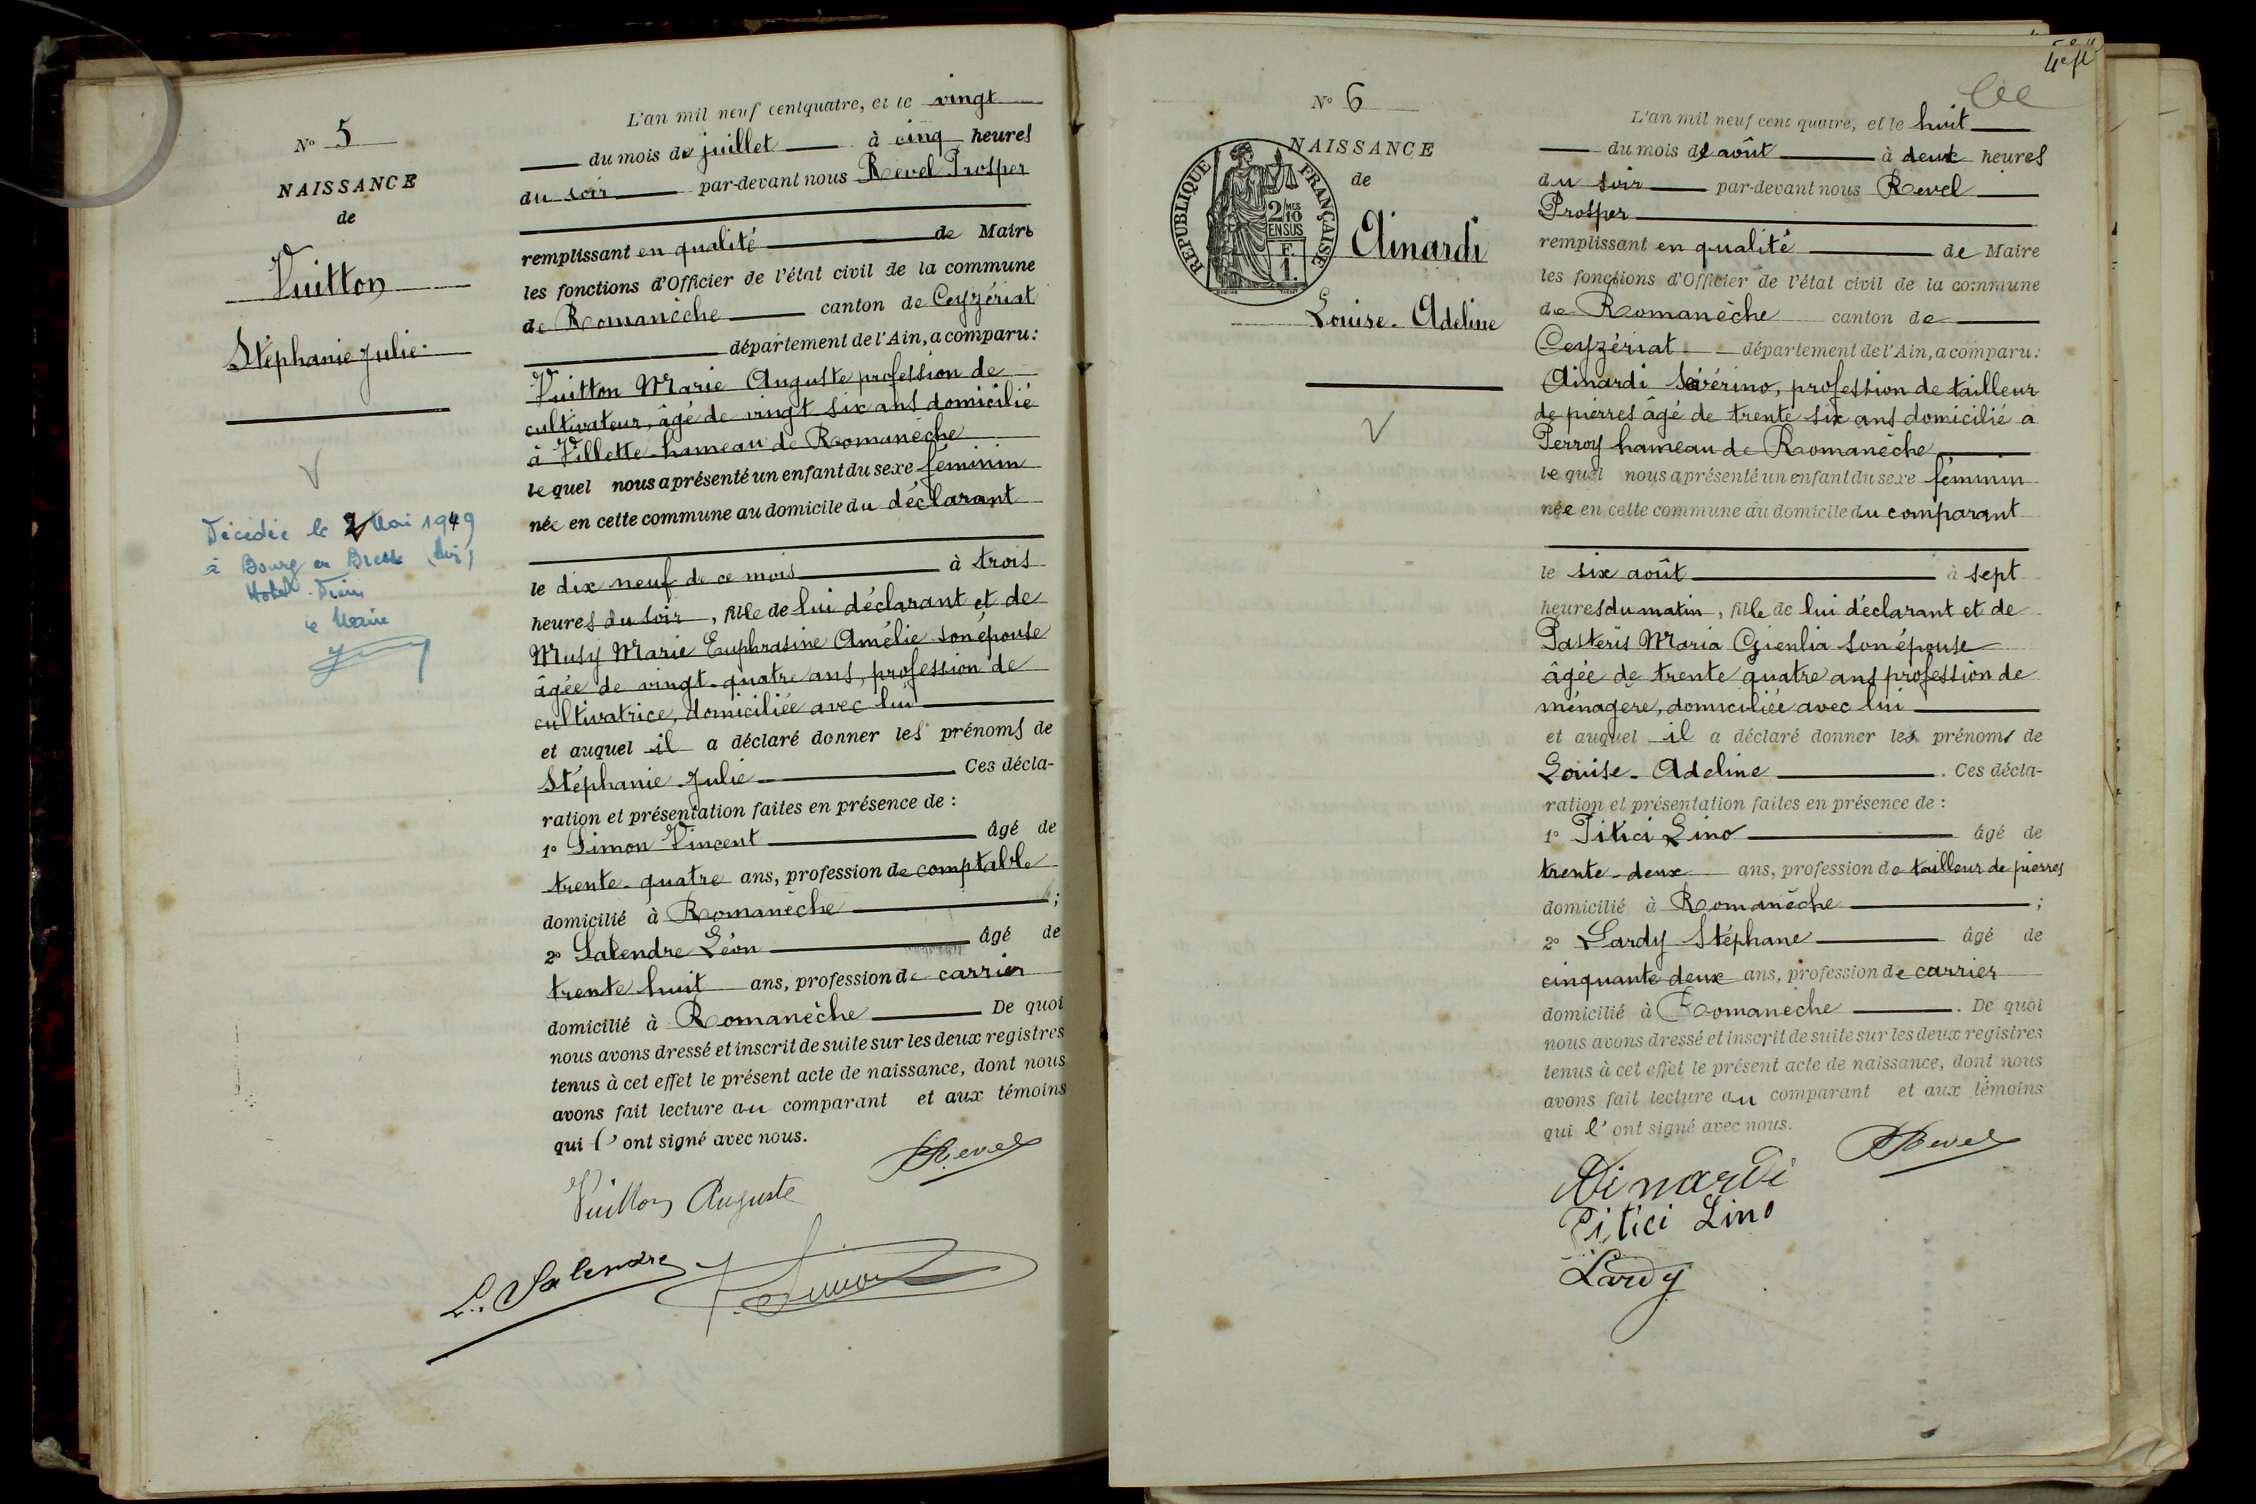 N° 5
NAISSANCE
de
Vuitton
Stéphanie Julie
Décédée le 2 Mai 1949
à Bourg en Bresse (Ain)
Hotel-Dieu
le Maire
L'an mil neuf cent quatre, et le vingt
du mois de juillet à cinq heures
du soir par-devant nous Revel Prosper
remplissant en qualité de Maire
les fonctions d'Officier de l'état civil de la commune
de Romanèche canton de Ceyzériat
département de l'Ain, a comparu:
Vuitton Marie Auguste profession de
cultivateur, âgé de vingt six ans domicilié
à Villette hameau de Romanèche
lequel nous a présenté un enfant du sexe féminin
née en cette commune au domicile du déclarant
le dix neuf de ce mois à trois
heures du soir, fille de lui déclarant et de
Musy Marie Euphrasine Amélie son épouse
âgée de vingt-quatre ans, profession de
cultivatrice, domiciliée avec lui
et auquel il a déclaré donner les prénoms de
Stéphanie Julie Ces décla-
ration et présentation faites en présence de :
1° Simon Vincent âgé de
trente-quatre ans, profession de comptable
domicilié à Romanèche ;
2° Salendre Léon âgé de
trente huit ans, profession de carrier
domicilié à Romanèche De quoi
nous avons dressé et inscrit de suite sur les deux registres
tenus à cet effet le présent acte de naissance, dont nous
avons fait lecture au comparant et aux témoins
qui l'ont signé avec nous.
PRevel
Vuitton Auguste
L. Salendre
V. Simon
N° 6
NAISSANCE
de
RÉPUBLIQUE FRANÇAISE
2/10 MES
EN SUS
F.
1.
Ainardi
Louise-Adeline
L'an mil neuf cent quatre, et le huit
du mois d'août à deux heures
du soir par-devant nous Revel
Prosper
remplissant en qualité de Maire
les fonctions d'Officier de l'état civil de la commune
de Romanèche canton de
Ceyzériat département de l'Ain, a comparu:
Ainardi Sévérino, profession de tailleur
de pierres âgé de trente six ans domicilié a
Perroy hameau de Romanèche
lequel nous a présenté un enfant du sexe féminin
née en cette commune au domicile du comparant
le six août à sept
heures du matin, fille de lui déclarant et de
Pasteris Maria son épouse
âgée de trente quatre ans profession de
ménagère, domiciliée avec lui
et auquel il a déclaré donner les prénoms de
Louise-Adeline. Ces décla-
ration et présentation faites en présence de :
1° Pitici Lino âgé de
trente-deux ans, profession de tailleur de pierres
domicilié à Romanèche ;
2° Lardy Stéphane âgé de
cinquante deux ans, profession de carrier
domicilié à Romanèche. De quoi
nous avons dressé et inscrit de suite sur les deux registres
tenus à cet effet le présent acte de naissance, dont nous
avons fait lecture au comparant et aux témoins
qui l'ont signé avec nous.
PRevel
Ainardi
Pitici Lino
Lardy